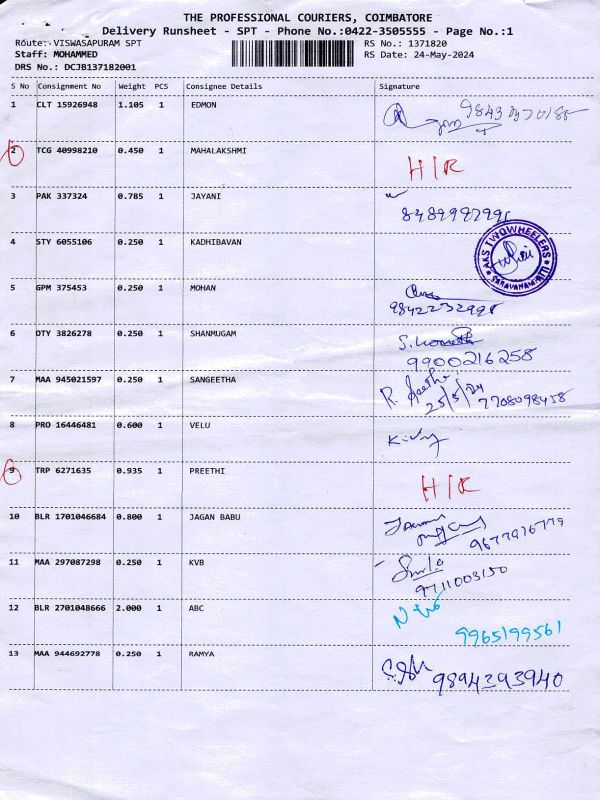 THE PROFESSIONAL COURIERS, COIMBATORE
Delivery Runsheet - SPT - Phone No.:0422-3505555 - Page No.:1
Route: VISWASAPURAM SPT RS No.: 1371820
Staff: MOHAMMED RS Date: 24-May-2024
DRS No.: DCJB137182001
S No Consignment No Weight PCS Consignee Details Signature
1 CLT 15926948 1.105 1 EDMON
2 TCG 40998210 0.450 1 MAHALAKSHMI H/R
3 PAK 337324 0.785 1 JAYANI
4 STY 6055106 0.250 1 KADHIBAVAN AKS TWOWHEELERS
5 GPM 375453 0.250 1 MOHAN
6 DTY 3826278 0.250 1 SHANMUGAM
9900216258
7 MAA 945021597 0.250 1 SANGEETHA
25/5/24 7708098458
8 PRO 16446481 0.600 1 VELU
9 TRP 6271635 0.935 1 PREETHI H/R
10 BLR 1701046684 0.800 1 JAGAN BABU
11 MAA 297087298 0.250 1 KVB
9711003150
12 BLR 2701048666 2.000 1 ABC
9965199561
13 MAA 944692778 0.250 1 RAMYA
9894293940